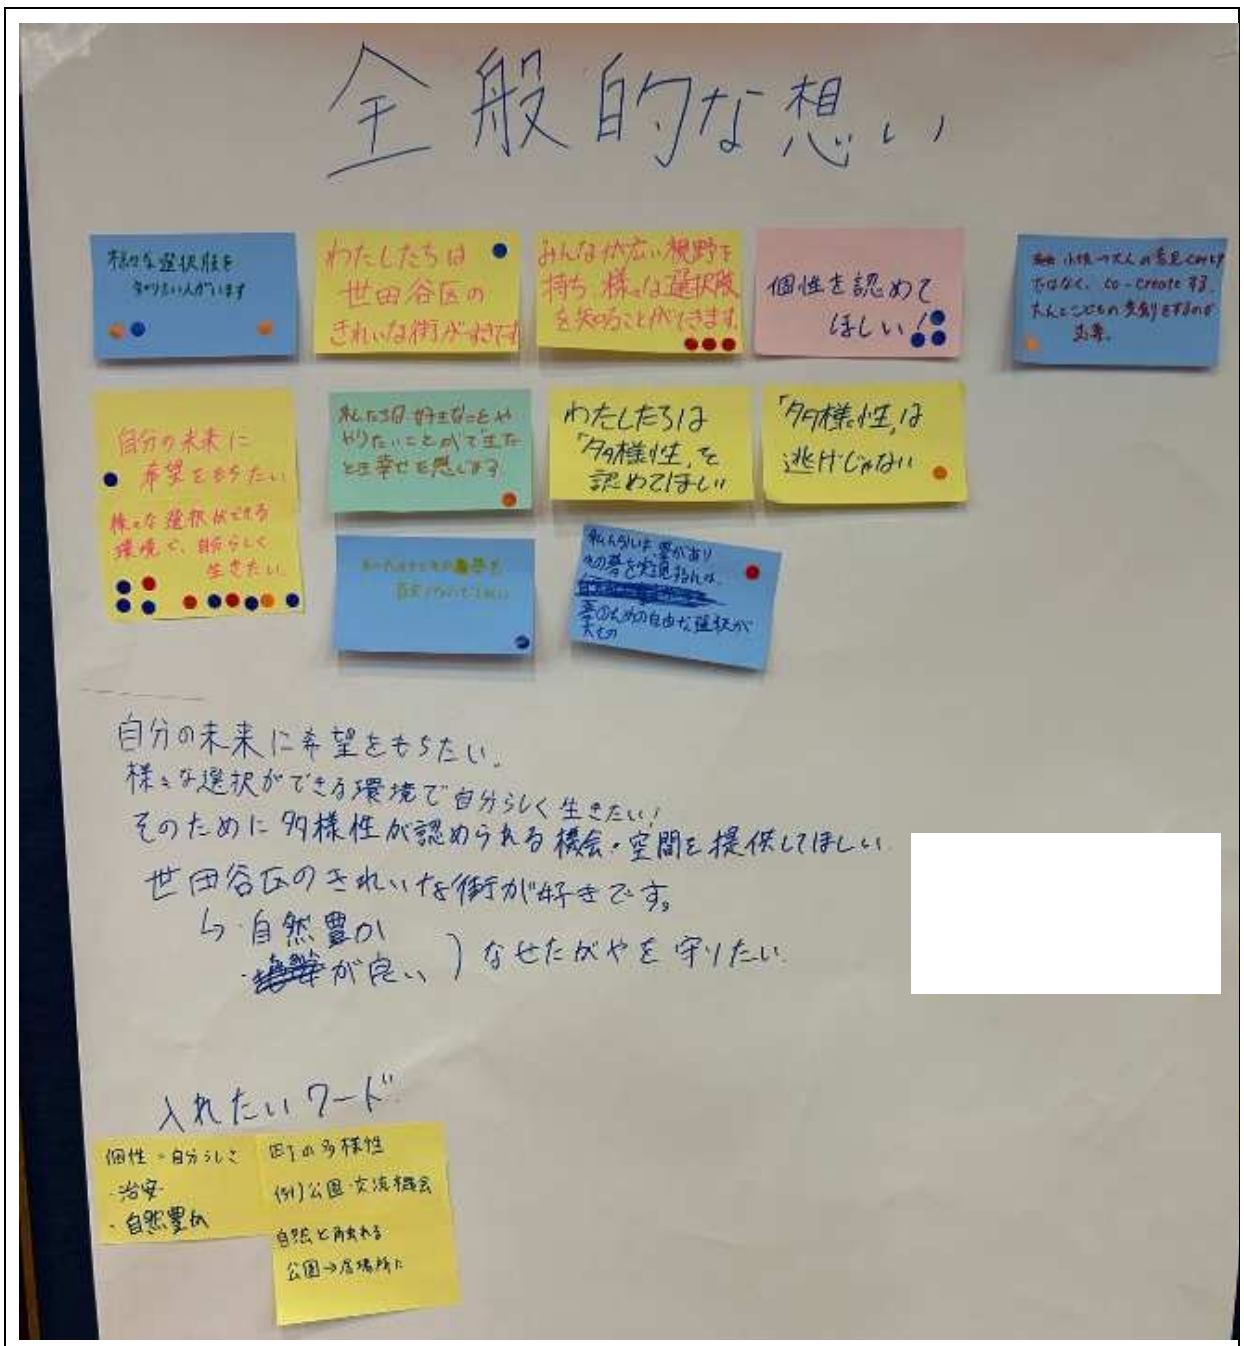 全般的な想い
様々な選択肢を
知りたい人がいます
わたしたちは
世田谷区の
きれいな街がすきです
みんなが広い視野を
持ち、様々な選択肢
を知ることができます。
個性を認めて
ほしい!
ではなく、co-createする。
大人とこどもの共創をするのが
自分の未来に
希望をもちたい
様々な選択ができる
環境で、自分らしく
生きたい。
私たちは好きなことや
やりたいことができた
とき幸せを感じます
わたしたちは
「多様性」を
認めてほしい
「多様性」は
逃げじゃない
私たちは夢があり
その夢を実現するには、
夢のための自由な選択が
大切
自分の未来に希望をもちたい。
様々な選択ができる環境で自分らしく生きたい!
そのために多様性が認められる機会・空間を提供してほしい
世田谷区のきれいな街が好きです。
↳・自然豊か
・が良い
)なせたがやを守りたい
入れたいワード
個性=自分らしさ
・治安
・自然豊か
の多様性
(例)公園・交流機会
自然と触れる
公園→居場所に